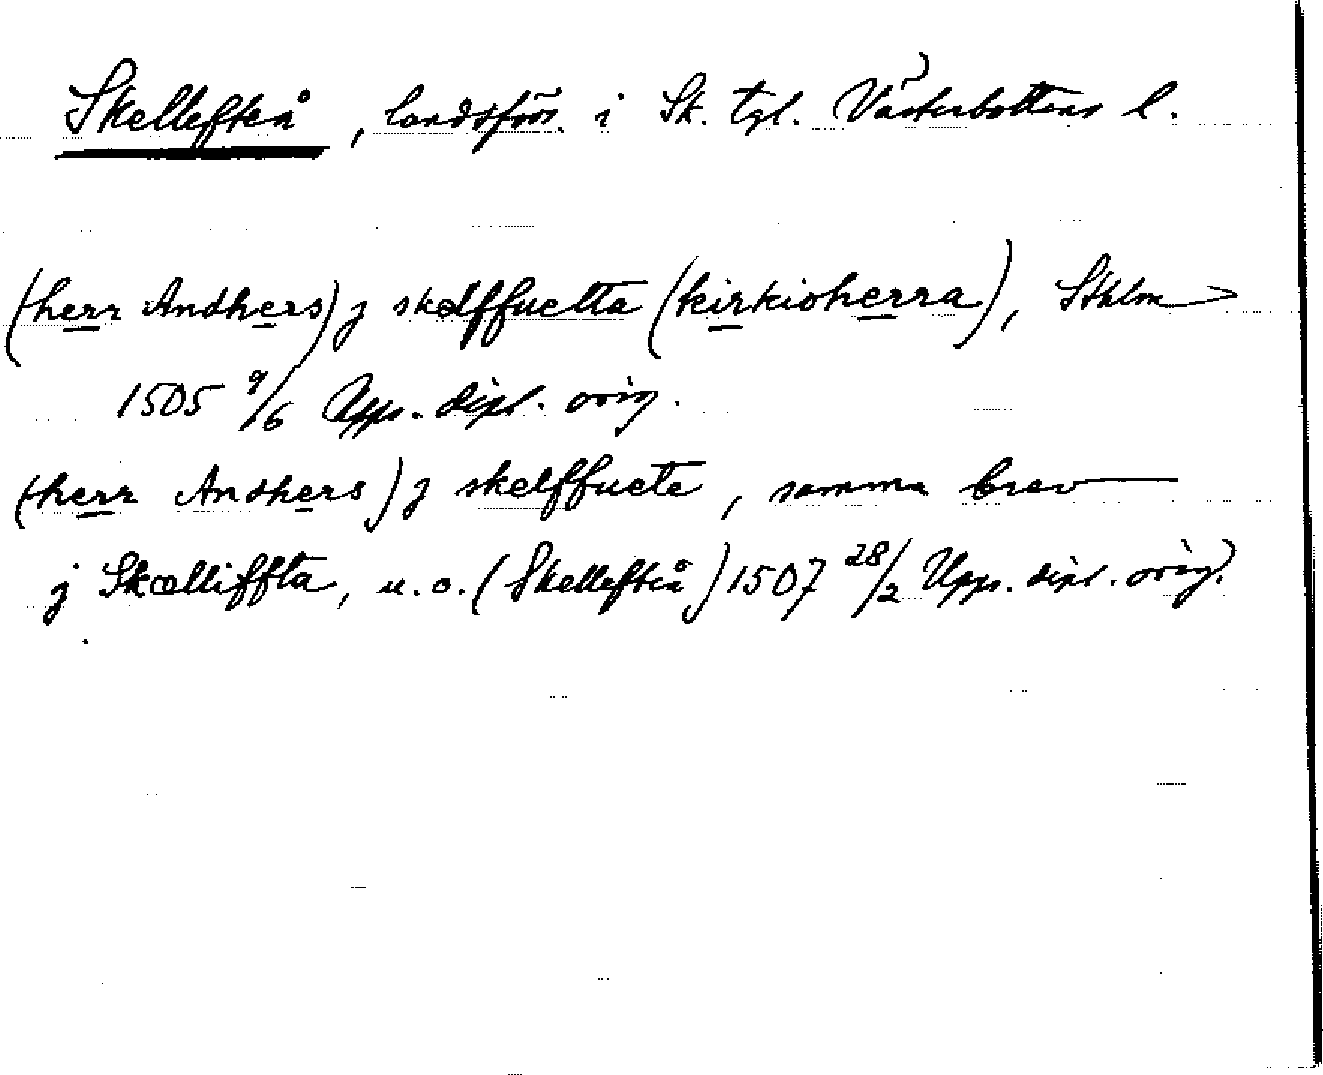 Skellefteå, landsförs. i Sk. tgl. Västerbottens l.
(herr Andhers) j skelffuetta (kirkioherra), Sthlm
1505 9/6 Upp. dipl. orig.
(herr Andhers) j skelffuete, samma brev
j Skælliffta, u.o. (Skellefteå) 1507 28/2 Upp. dipl. orig.